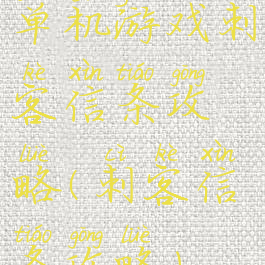 单机游戏刺
kè xìn tiáo gōng
客信条攻
lüè cì kè xìn
略(刺客信
tiáo gōng lüè
条攻略)